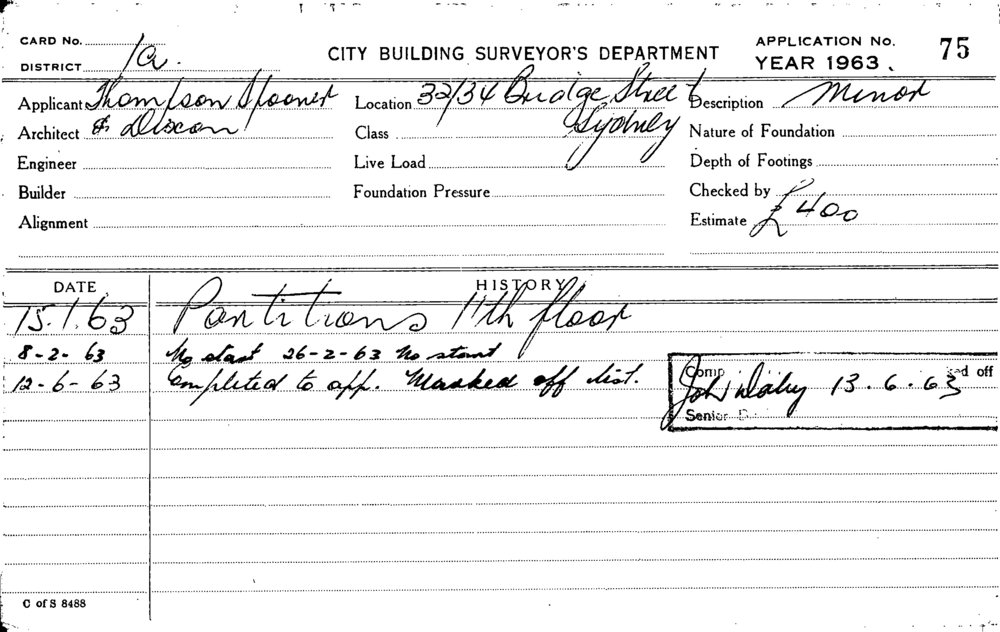 CARD No.
CITY BUILDING SURVEYOR'S DEPARTMENT
APPLICATION No. 75
DISTRICT 1a.
YEAR 1963
Applicant Thompson Spooner
Location 32/34 Bridge Street
Description Minor
Architect & Dixon
Class Sydney
Nature of Foundation
Engineer
Live Load
Depth of Footings
Builder
Foundation Pressure
Checked by
Alignment
Estimate £400
DATE
HISTORY
15.1.63 Partitions 11th floor
8-2-63 No start 26-2-63 No start
12-6-63 Completed to app. Marked off dist.
Comp ed off
John Daby 13.6.63
Senior
C of S 8488